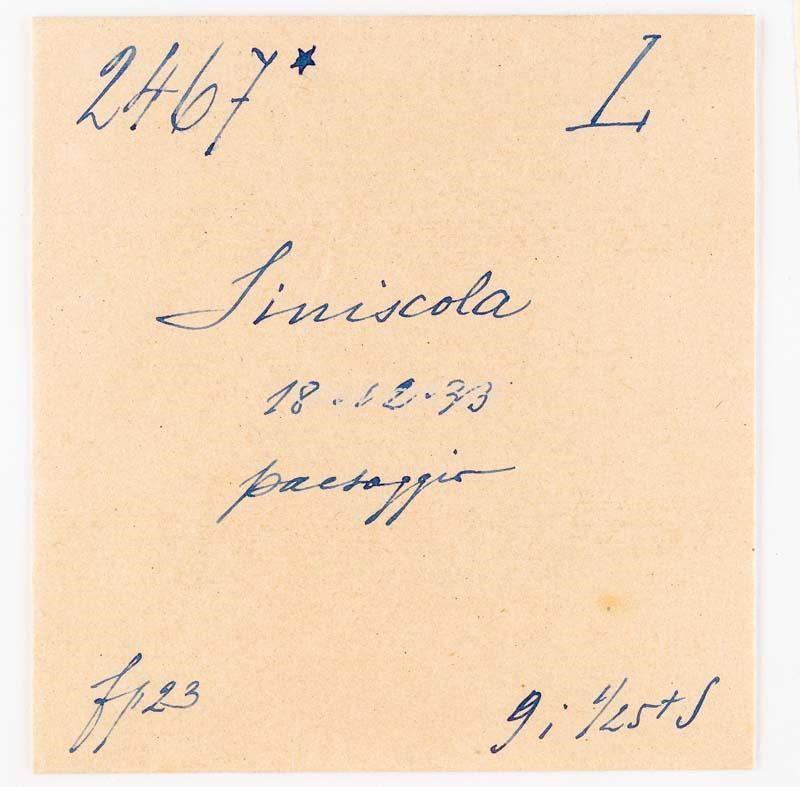 2467* L
Siniscola
18-12-33
paesaggio
fp23
9 i 1/25+S